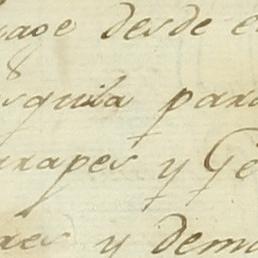 age desde e
squila para
arapes y Ge
res y dema